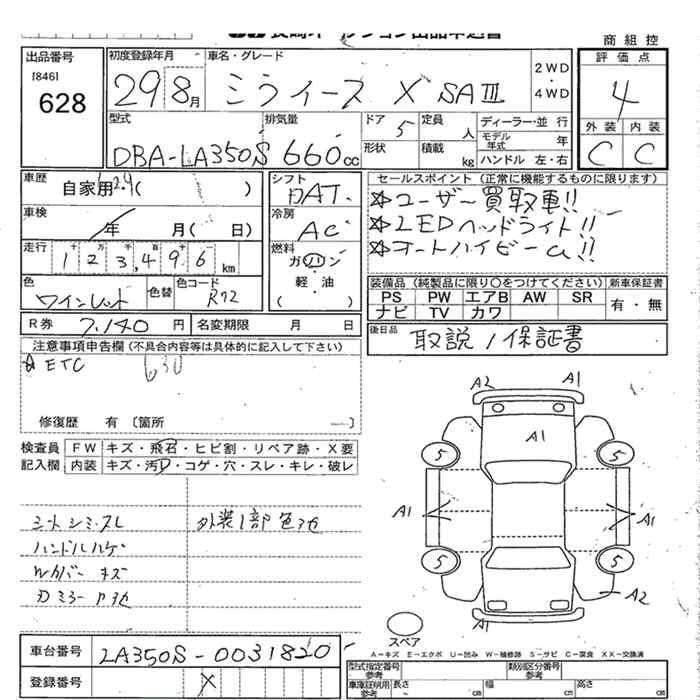 商 組 控
出品番号
[846]
628
初度登録年月
29年8月
車名・グレード
ミライース X SAⅢ
2WD
4WD
評 価 点
4
外 装 内 装
C C
型式
DBA-LA350S
排気量
660cc
ドア 5
形状
定員 人
積載 kg
ディーラー・並 行
モデル年式 年
ハンドル 左・右
車歴
自家用 ( )
車検
年 月( 日)
走行
十 万 千 百 十
123,496 km
色
ワインレッド
色替
色コード
R72
シフト
AT
冷房
AC
燃料
ガソリン
軽・油
( )
セールスポイント (正常に機能するものに限ります)
☆ユーザー買取車!!
☆LEDヘッドライト!!
☆オートハイビーム!!
装備品 (純製品に限り○をつけてください)
新車保証書
PS PW エアB AW SR
ナビ TV カワ
有・無
後日品
取説/保証書
R券 7,140 円
名変期限 月 日
注意事項申告欄 (不具合内容等は具体的に記入して下さい)
☆ETC 630
修復歴 有 〔箇所 〕
検査員記入欄
FW キズ・飛石・ヒビ割・リペア跡・X要
内装 キズ・汚・コゲ・穴・スレ・キレ・破レ
シートシミ・スレ
外装1部色あせ
ハンドルハゲ
Wカバー キズ
A2 A1
A1
5 5
A1 A1
5 5
A1 A2
W
スペア
A－キズ E－エクボ U－凹み W－補修跡 S－サビ C－腐食 XX－交換済
車台番号
LA350S-0031820
登録番号
X
型式指定番号
参考
類別区分番号
参考
車庫証明用
参考
長さ cm
幅 cm
高さ cm